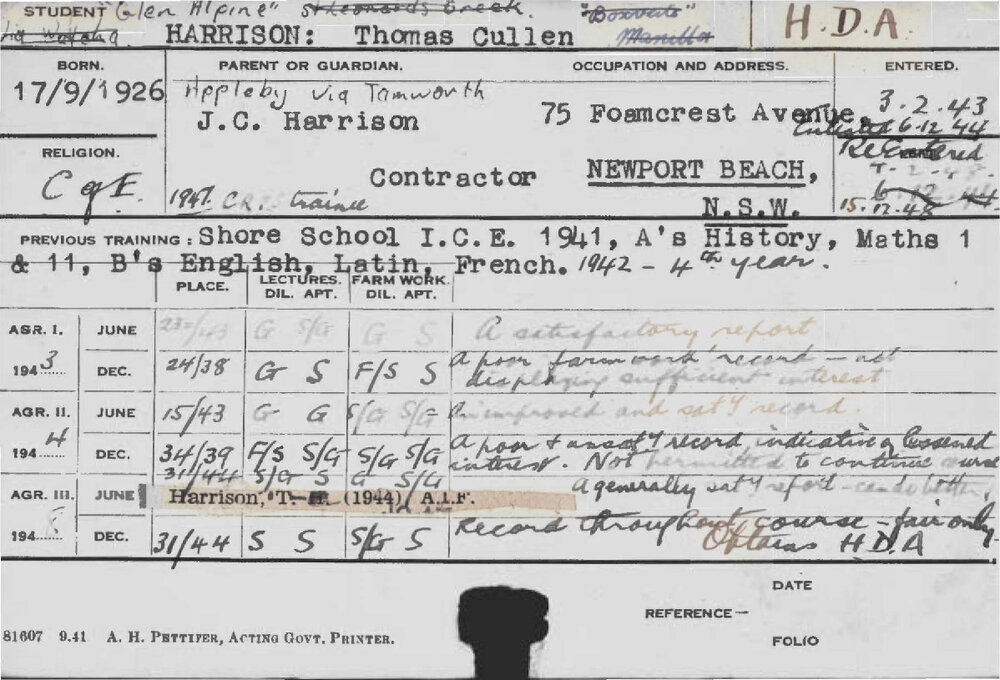 STUDENT "Glen Alpine" St Leonards Creek. "Boxvale" H.D.A.
via HARRISON: Thomas Cullen Manilla
BORN. PARENT OR GUARDIAN. OCCUPATION AND ADDRESS. ENTERED.
17/9/1926 Appleby via Tamworth 3.2.43
J.C. Harrison 75 Foamcrest Avenue, 6.12.44
RELIGION. Re Entered
C of E. Contractor NEWPORT BEACH,
1947. C.R.T.S trainee N.S.W. 15.12.48
PREVIOUS TRAINING: Shore School I.C.E. 1941, A's History, Maths 1
& 11, B's English, Latin, French. 1942 - 4th year.
PLACE. LECTURES. FARM WORK.
DIL. APT. DIL. APT.
AGR. I. JUNE 23/43 G S/G G S A satisfactory report
1943 DEC. 24/38 G S F/S S A poor farm work record - not
displaying sufficient interest
AGR. II. JUNE 15/43 G G S/G S/G An improved and sat'y record.
1944 DEC. 34/39 F/S S/G S/G S/G A poor & unsat'y record, indicative of lessened
interest. Not permitted to continue course
31/44 S/G S G S/G A generally sat'y report - can do better.
AGR. III. JUNE Harrison, T. (1944) A.I.F.
1948 DEC. 31/44 S S S/G S Record throughout course - fair only.
Obtains H.D.A
DATE
REFERENCE—
FOLIO
81607 9.41 A. H. PETTIFER, ACTING GOVT. PRINTER.